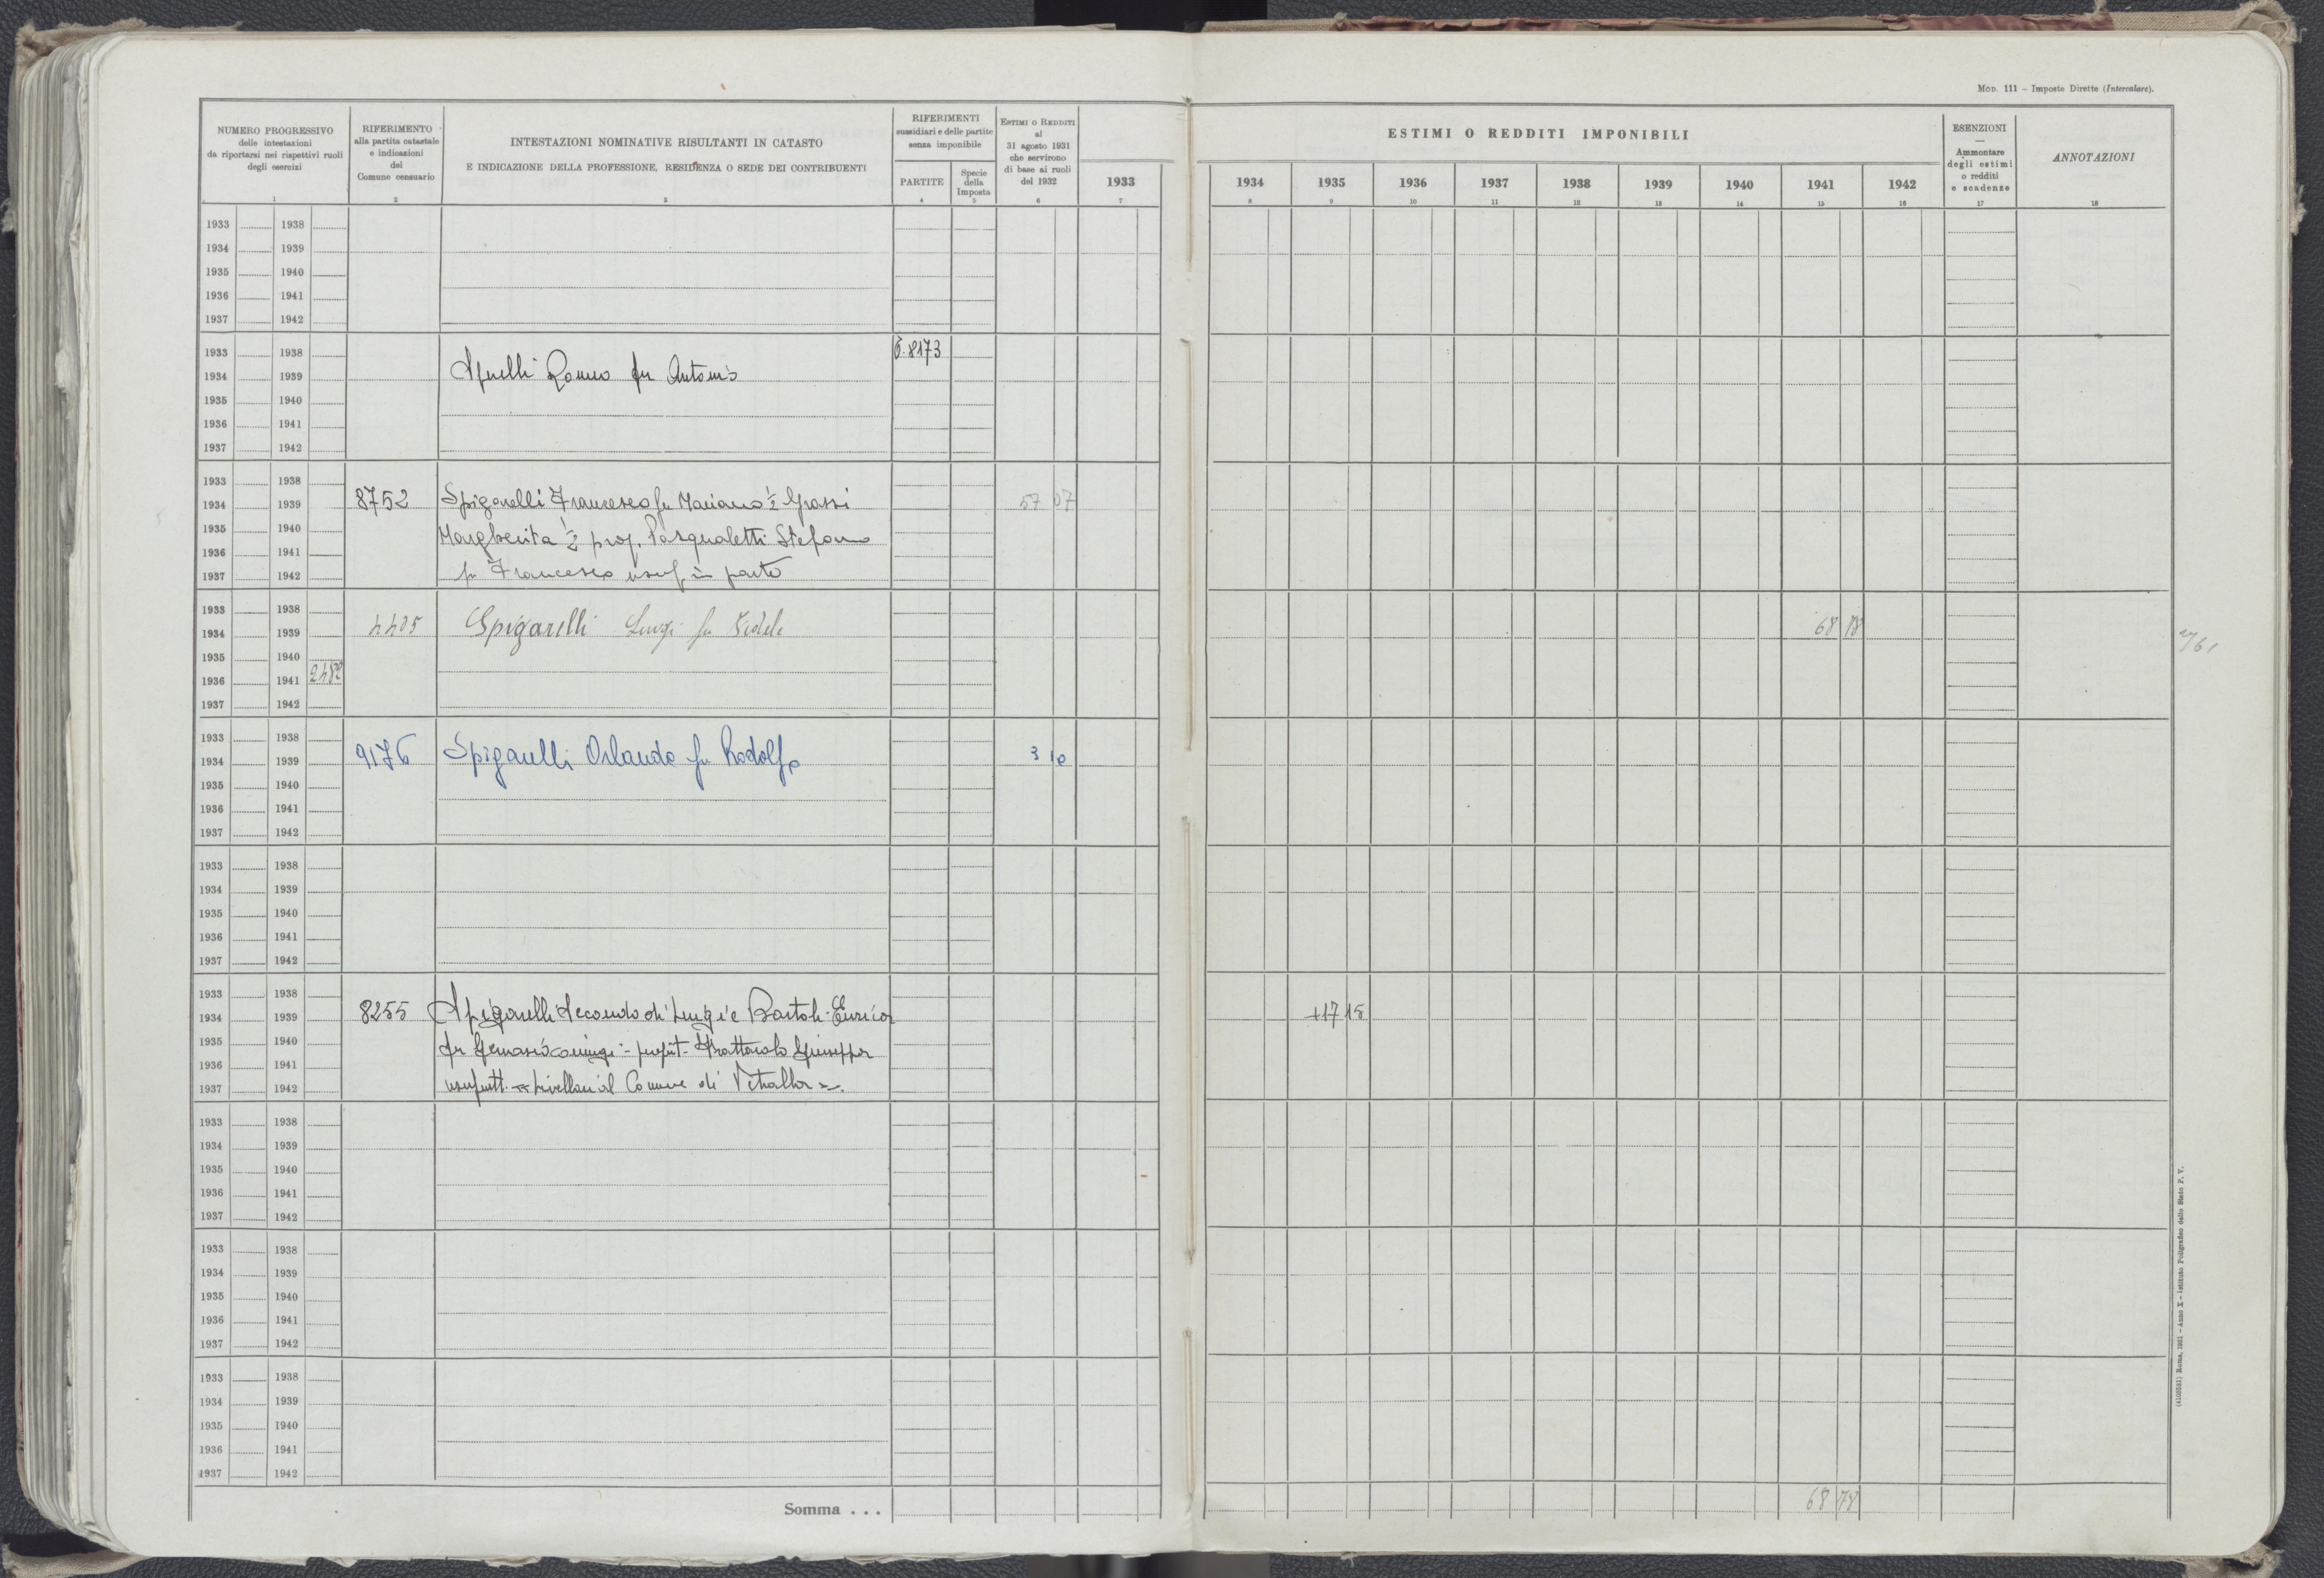 MOD. 111 – Imposte Dirette (Intercalare).
NUMERO PROGRESSIVO
delle intestazioni
da riportarsi nei rispettivi ruoli
degli esercizi
RIFERIMENTO
alla partita catastale
e indicazioni
del
Comune censuario
INTESTAZIONI NOMINATIVE RISULTANTI IN CATASTO
E INDICAZIONE DELLA PROFESSIONE, RESIDENZA O SEDE DEI CONTRIBUENTI
RIFERIMENTI
sussidiari e delle partite
senza imponibile
PARTITE
Specie
della
Imposta
ESTIMI O REDDITI
al
31 agosto 1931
che servirono
di base ai ruoli
del 1932
1933
ESTIMI O REDDITI IMPONIBILI
1934 1935 1936 1937 1938 1939 1940 1941 1942
ESENZIONI
—
Ammontare
degli estimi
o redditi
e scadenze
ANNOTAZIONI
1 2 3 4 5 6 7 8 9 10 11 12 13 14 15 16 17 18
1933 1938
1934 1939
1935 1940
1936 1941
1937 1942
1933 1938 8173
1934 1939 Romeo fu Antonio
1935 1940
1936 1941
1937 1942
1933 1938
1934 1939 8752 Spigarelli Francesco fu Mariano ½ Grassi 57 07
1935 1940 Margherita ½ prop. Pasqualetti Stefano
1936 1941
1937 1942 fu Francesco usuf. in parte
1933 1938
1934 1939 4405 Spigarelli Luigi fu Fedele 68 78
1935 1940
1936 1941 2482
1937 1942
1933 1938
1934 1939 9176 Spigarelli Orlando fu Rodolfo 3 10
1935 1940
1936 1941
1937 1942
1933 1938
1934 1939
1935 1940
1936 1941
1937 1942
1933 1938
1934 1939 8255 Spigarelli Secondo di Luigi e Bartoli Enrica +17 15
1935 1940 fu coniugi - Giuseppa
1936 1941
1937 1942 usufrutt. livellari al Comune di Vetralla
1933 1938
1934 1939
1935 1940
1936 1941
1937 1942
1933 1938
1934 1939
1935 1940
1936 1941
1937 1942
1933 1938
1934 1939
1935 1940
1936 1941
1937 1942
Somma . . . 68 78
Roma, 1931 – Anno X – Istituto Poligrafico dello Stato P. V.